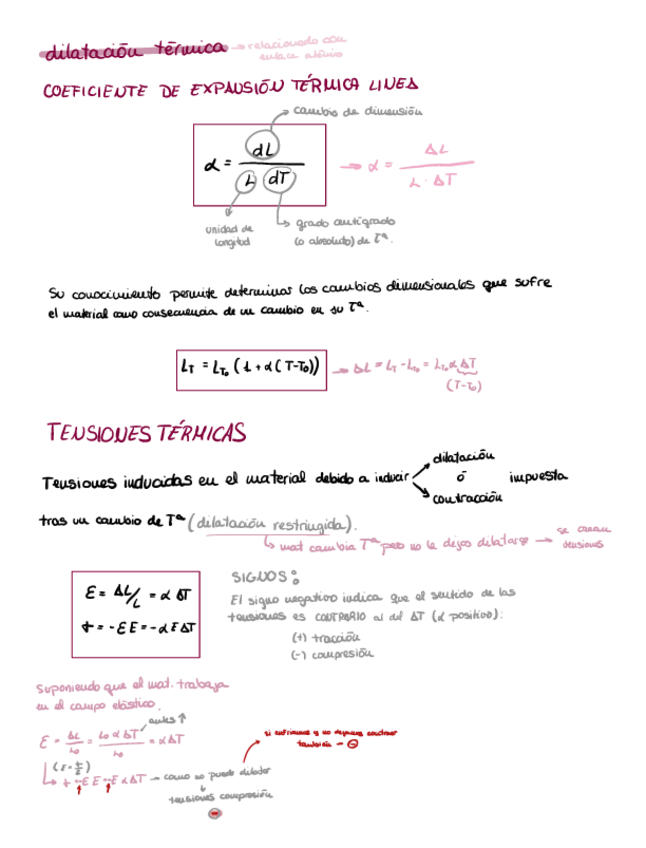 dilatación térmica → relacionado con
enlace atómico
COEFICIENTE DE EXPANSIÓN TÉRMICA LINEA
cambio de dimensión
α = dL / L dT → α = ΔL / L · ΔT
unidad de longitud
grado centígrado (o absoluto) de Tª.
Su conocimiento permite determinar los cambios dimensionales que sufre
el material como consecuencia de un cambio en su Tª.
L_T = L_T₀ (1 + α (T-T₀)) → ΔL = L_T - L_T₀ = L_T₀ α ΔT
(T-T₀)
TENSIONES TÉRMICAS
Tensiones inducidas en el material debido a inducir dilatación ó contracción impuesta
tras un cambio de Tª (dilatación restringida).
↳ mat cambia Tª pero no le dejas dilatarse → se crean tensiones
ε = ΔL/L = α ΔT
σ = -E ε = -α E ΔT
SIGNOS:
El signo negativo indica que el sentido de las
tensiones es CONTRARIO al del ΔT (α positivo):
(+) tracción
(-) compresión
Suponiendo que el mat. trabaja
en el campo elástico.
antes ↑
ε = ΔL / L₀ = L₀ α ΔT / L₀ = α ΔT
→ como no puede dilatar
↓
tensiones compresión
⊖
si enfriamos y no dejamos contraer
también → ⊖